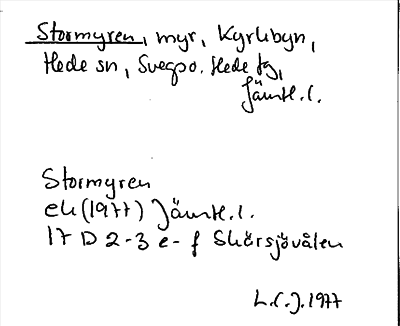 Stormyren, myr, Kyrkbyn,
Hede sn, Svegpo. Hede tg,
Jämtl. l.
Stormyren
ek (1977) Jämtl. l.
17 D 2-3 e-f Skörsjövålen
L.C.J. 1977